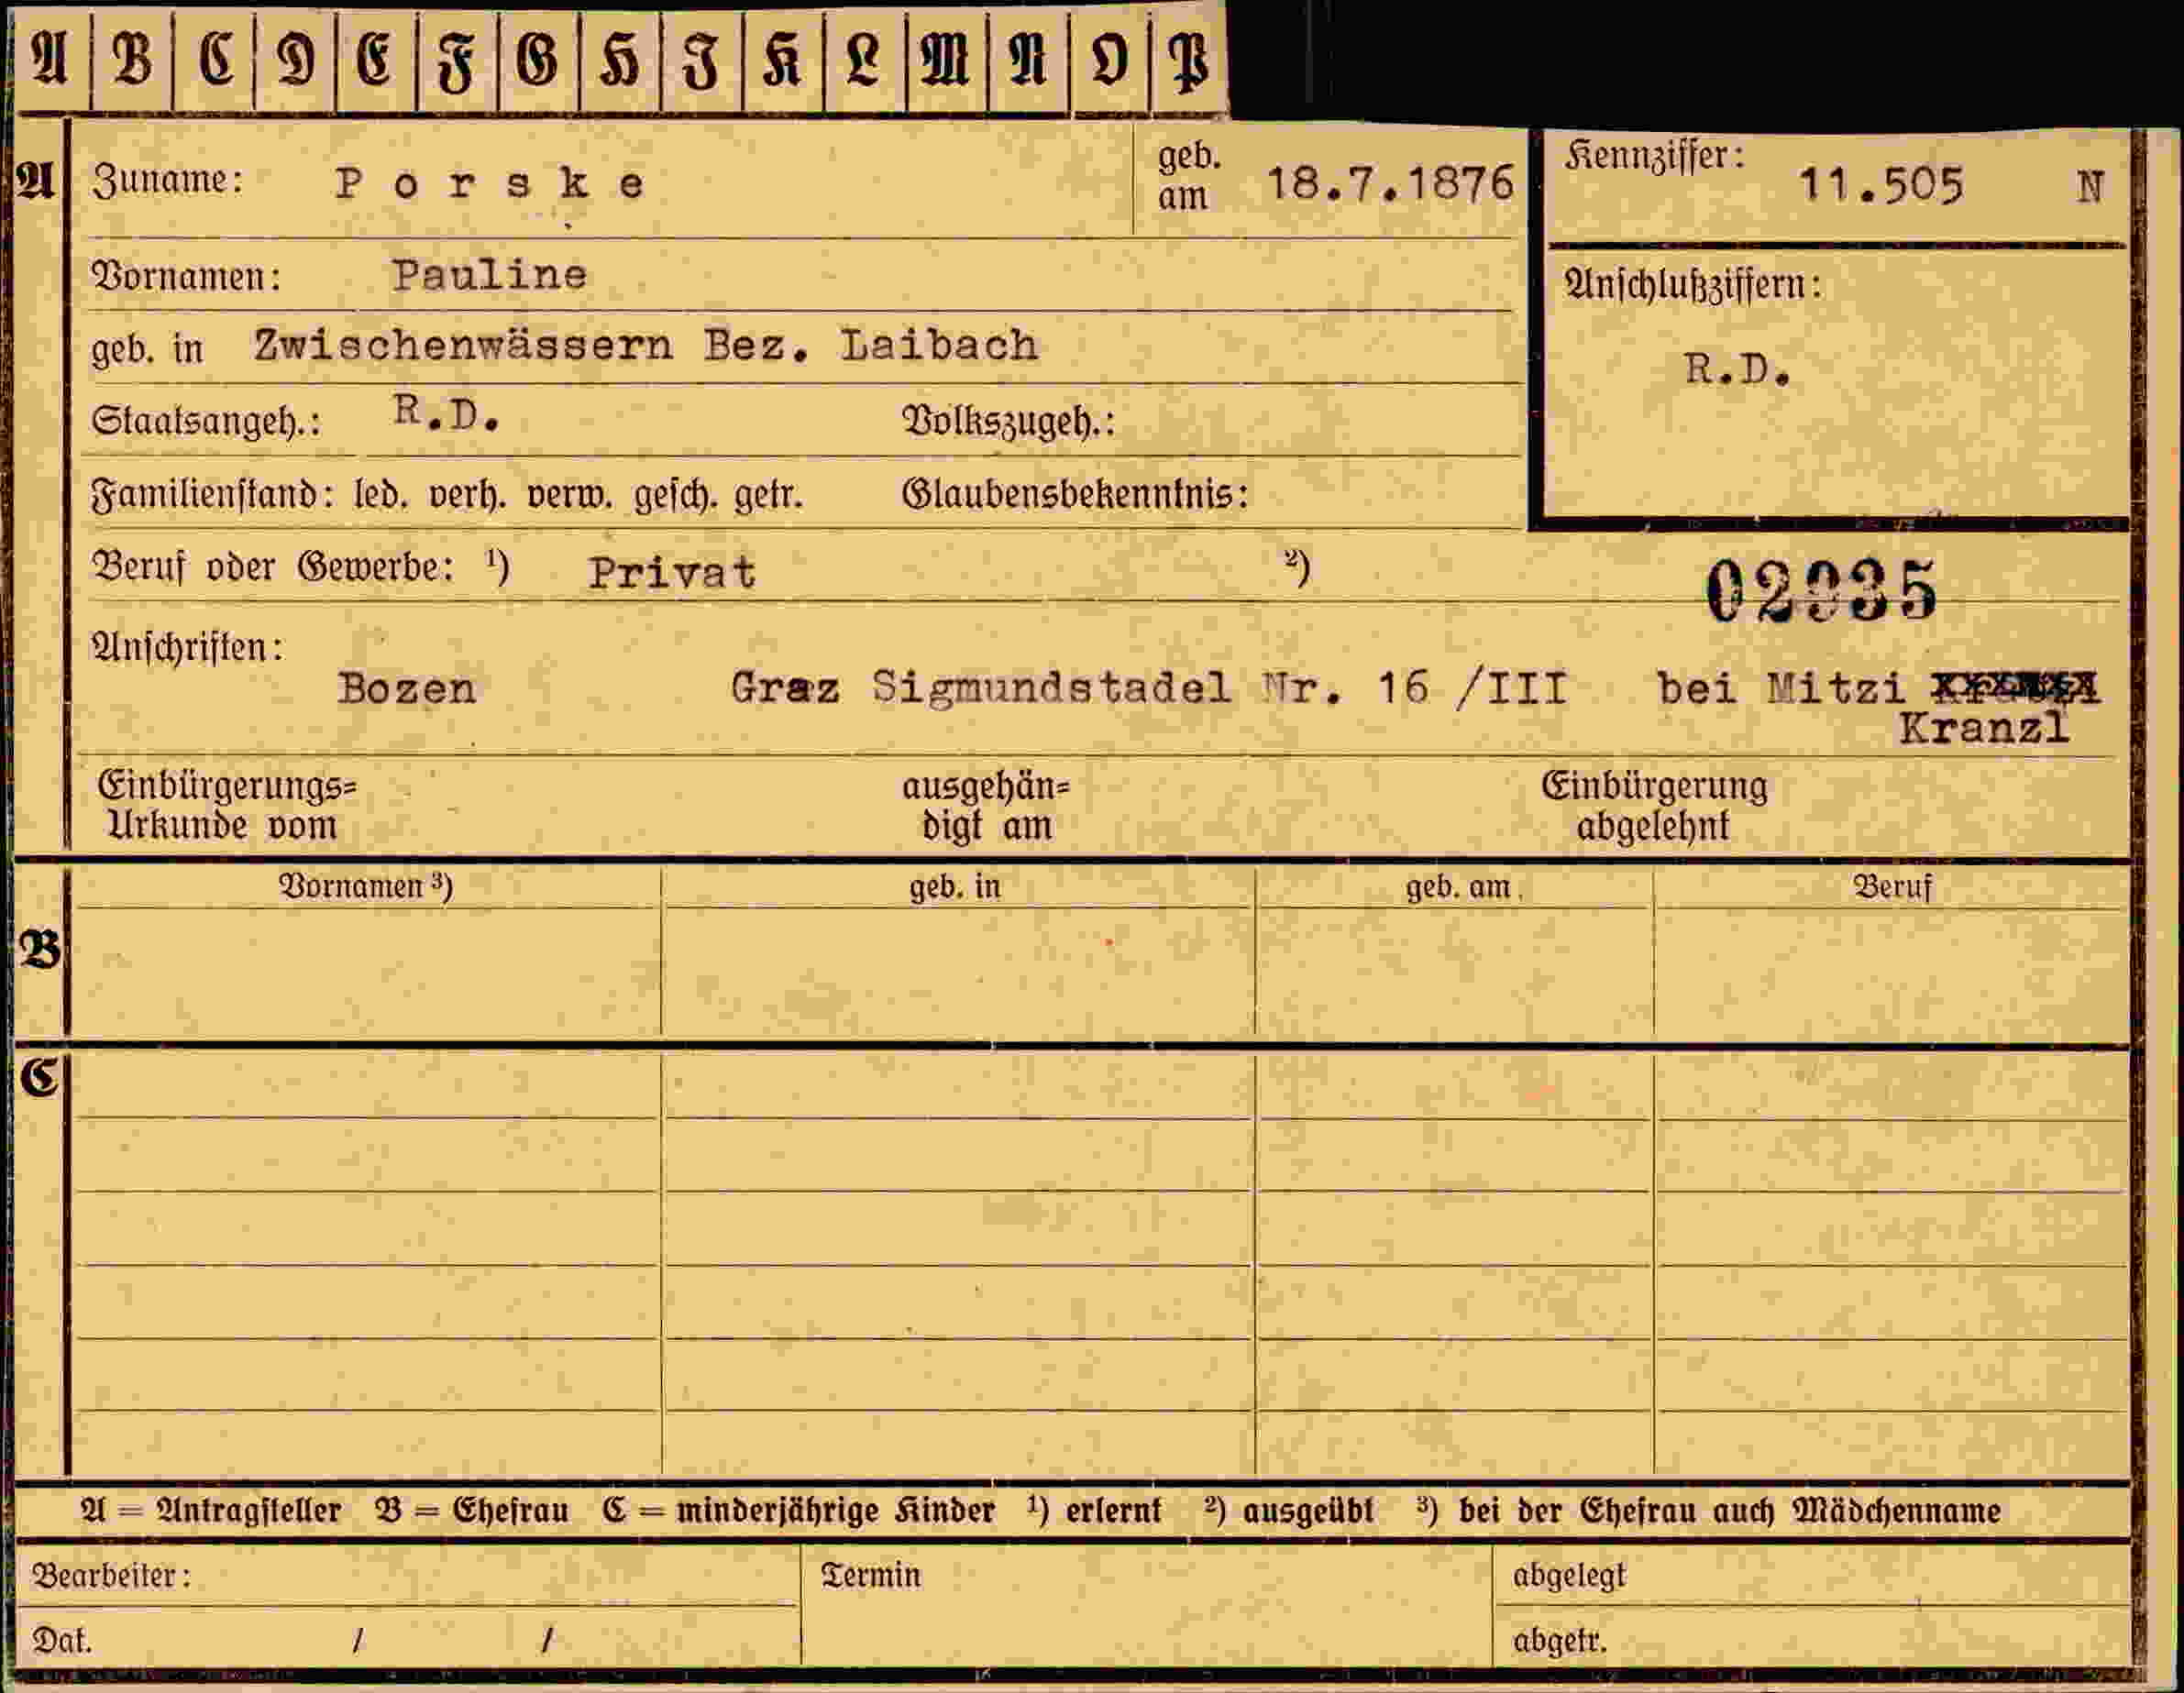 A B C D E F G H I K L M N O P
A Zuname: Porske geb. am 18.7.1876 Kennziffer: 11.505 N
Vornamen: Pauline
Anschlußziffern:
geb. in Zwischenwässern Bez. Laibach
R.D.
Staatsangeh.: R.D. Volkszugeh.:
Familienstand: led. verh. verw. gesch. getr. Glaubensbekenntnis:
Beruf oder Gewerbe: ¹) Privat ²)
02935
Anschriften:
Bozen Graz Sigmundstadel Nr. 16 /III bei Mitzi
Kranzl
Einbürgerungs= ausgehän= Einbürgerung
Urkunde vom digt am abgelehnt
Vornamen ³) geb. in geb. am Beruf
B
C
A = Antragsteller B = Ehefrau C = minderjährige Kinder ¹) erlernt ²) ausgeübt ³) bei der Ehefrau auch Mädchenname
Bearbeiter: Termin abgelegt
Dat. / / abgetr.